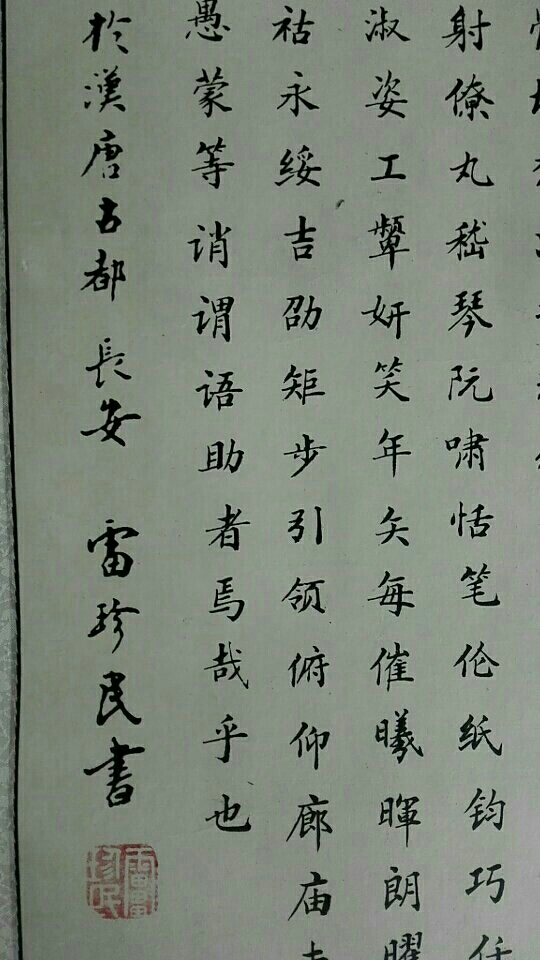 射僚丸嵇琴阮啸恬笔伦纸钧巧任
淑姿工颦妍笑年矢每催曦晖朗曜
祜永绥吉劭矩步引领俯仰廊庙
愚蒙等诮谓语助者焉哉乎也
於漢唐古都 長安 雷珍民書
雷珍民